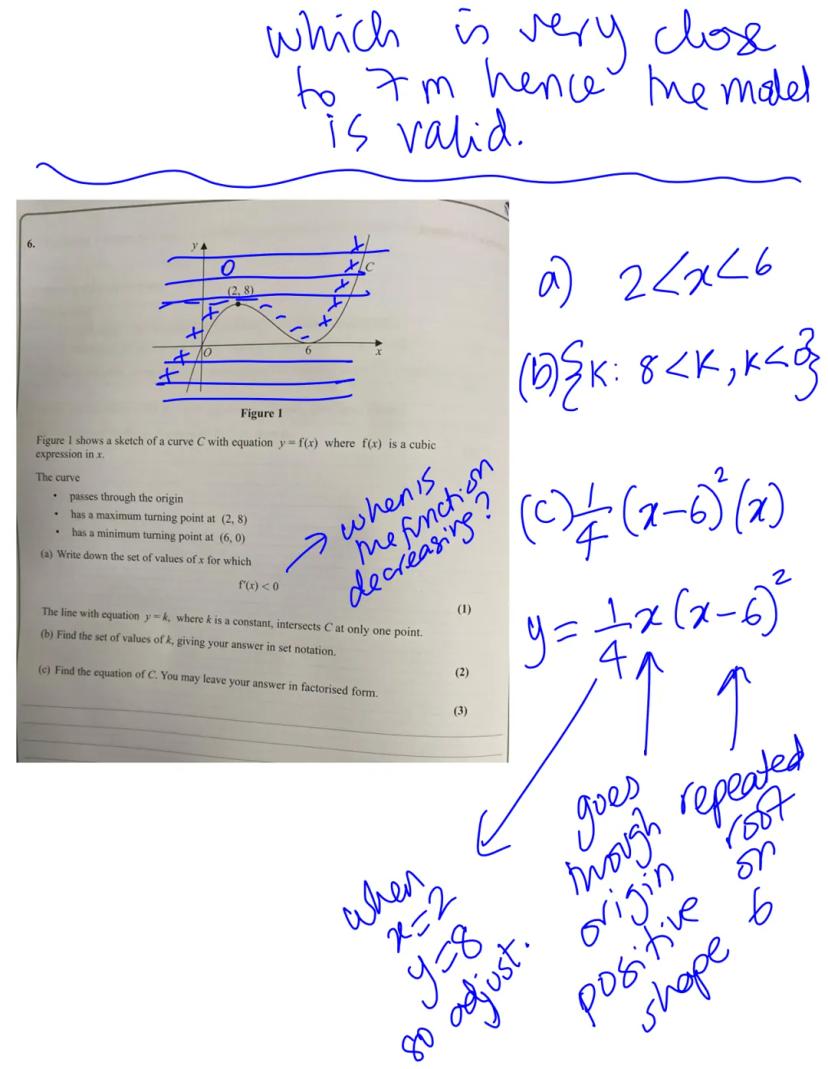 which is very close
to 7m hence the model
is valid.
6.
y
O
C
(2, 8)
O
6
x
Figure 1
Figure 1 shows a sketch of a curve C with equation y = f(x) where f(x) is a cubic
expression in x.
The curve
• passes through the origin
• has a maximum turning point at (2, 8)
• has a minimum turning point at (6, 0)
(a) Write down the set of values of x for which
f'(x) < 0
(1)
The line with equation y = k, where k is a constant, intersects C at only one point.
(b) Find the set of values of k, giving your answer in set notation.
(2)
(c) Find the equation of C. You may leave your answer in factorised form.
(3)
when is
the function
decreasing?
a) 2<x<6
(b) {K: 8<K, K<0}
(c) 1/4 (x-6)²(x)
y = 1/4 x(x-6)²
when
x=2
y=8
so adjust.
goes
through
origin
positive
shape
repeated
root
on
6